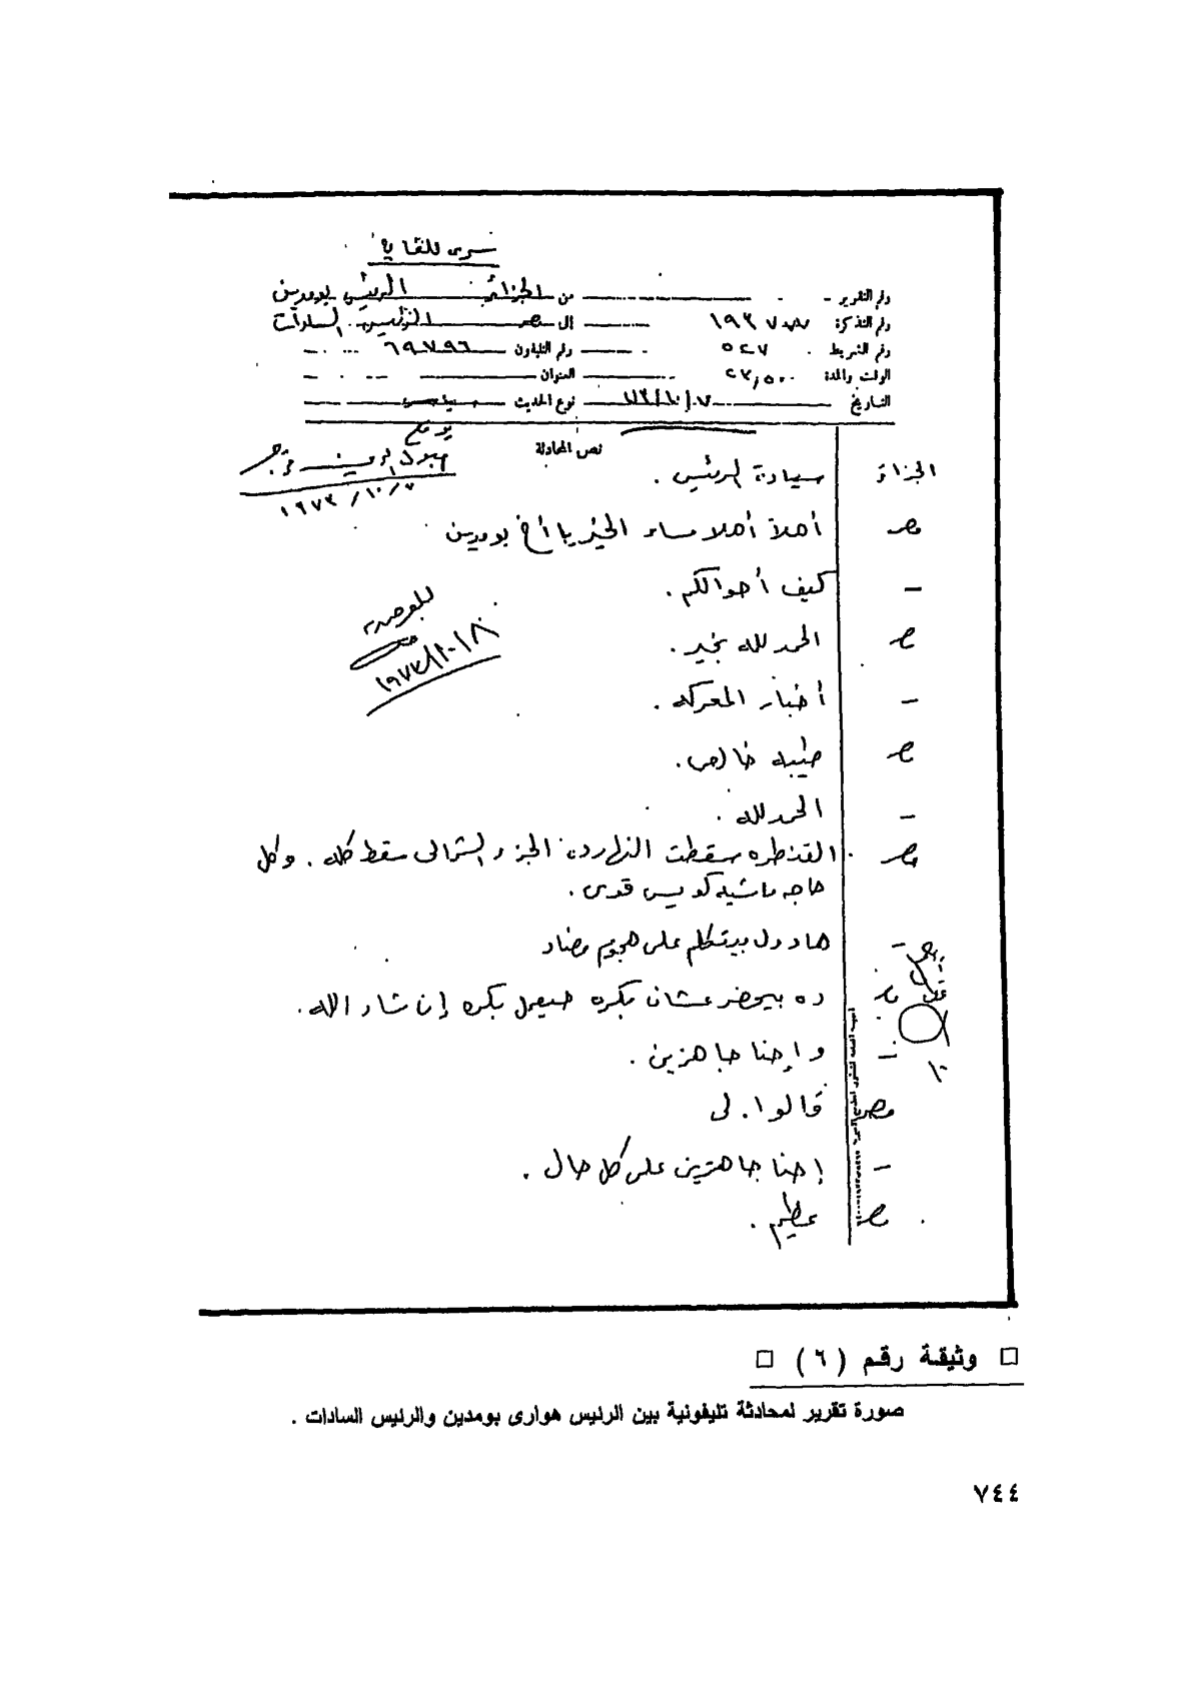 سرى للغاية
رقم التقرير من الجزائر الرئيس بومدين
رقم التذكرة إلى مصر الرئيس السادات
رقم الشريط ٥٤٧ رقم التليفون ٦٩٧٩٦
الوقت والمدة العنوان
التاريخ ٧٣/١٠/٧ نوع الحديث
نص المحادثة
١٩٧٣/١٠/٧
الجزائر سيادة الرئيس .
مصر أهلا أهلا مساء الخير يا أخ بومدين
ـ كيف أحوالكم .
مصر الحمد لله بخير .
ـ أخبار المعركه .
مصر طيبه خالص .
ـ الحمد لله .
مصر القنطره سقطت النهارده الجزء الشمالى سقط كله . وكل
حاجه ماشيه كويس قوى .
ـ هادول بيتكلم على هجوم مضاد
ده بيحضر عشان بكره حيعمل بكره إن شاء الله .
وإحنا جاهزين .
مصر قالوا . لى
ـ إحنا جاهزين على كل حال .
مصر عظيم .
للعرض
١٩٧٣/١٠/٨
□ وثيقة رقم ( ٦ ) □
صورة تقرير لمحادثة تليفونية بين الرئيس هوارى بومدين والرئيس السادات .
٧٤٤